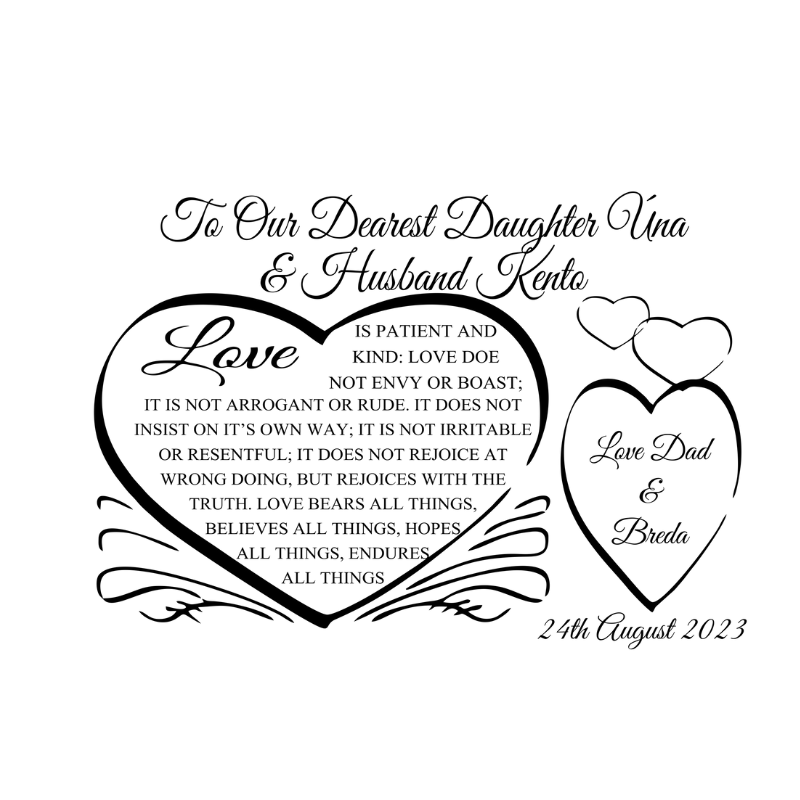 To Our Dearest Daughter Úna
& Husband Kento
Love
IS PATIENT AND
KIND: LOVE DOE
NOT ENVY OR BOAST;
IT IS NOT ARROGANT OR RUDE. IT DOES NOT
INSIST ON IT'S OWN WAY; IT IS NOT IRRITABLE
OR RESENTFUL; IT DOES NOT REJOICE AT
WRONG DOING, BUT REJOICES WITH THE
TRUTH. LOVE BEARS ALL THINGS,
BELIEVES ALL THINGS, HOPES
ALL THINGS, ENDURES
ALL THINGS
Love Dad
&
Breda
24th August 2023